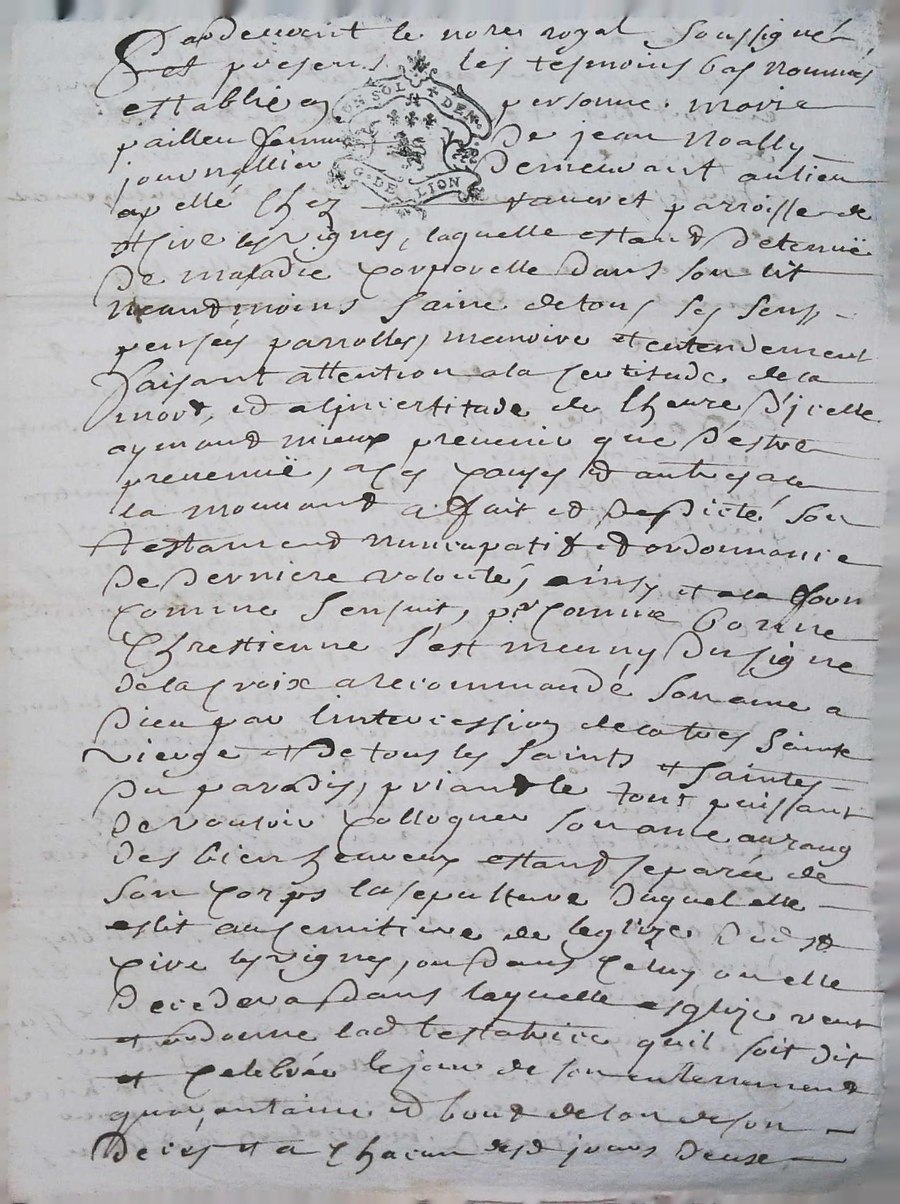 Pardevant le nore royal soussigné,
Et presens les tesmoins bas nommés
establie en personne marie
pailleu femme de jean Noally
journallier demeurant au lieu
apellé chez vauret parroisse de
st sire les vignes, laquelle estand detenuë
de maladie corporelle dans son lit
neandmoins saine de tous ses sens
pensées parrolles, memoire et entendement
faisant attention a la certitude de la
mort, et a lincertitude de lheure d'jcelle
aymand mieux prevenir que d'estre
prevenuë, a ces causes et autres a ce
la mouvand a fait et dessicté son
testament nuncupatif et ordonnance
de derniere volonté, ainsy et a la forme
comme s'ensuit, pr comme bonne
chrestienne s'est meuny du signe
de la croix a recommandé son ame a
dieu par l'intercession de la tres sainte
vierge et de tous les saints et saintes
du paradis, priant le tout puissant
de vouloir colloquer son ame au rang
des bien heureux estand separée de
son corps la sepulture duquel elle
eslit au semitiere de leglize dud st
cire les vignes, ou dans celuy ou elle
decedera dans laquelle esglize veut
et ordonne lad testatrice quil soit dit
et celebrée le jour de son enterrement
quarantaine et bout de lan de son
deces et a chacun desd jours deux
ON SOL DEN
G. DE LION